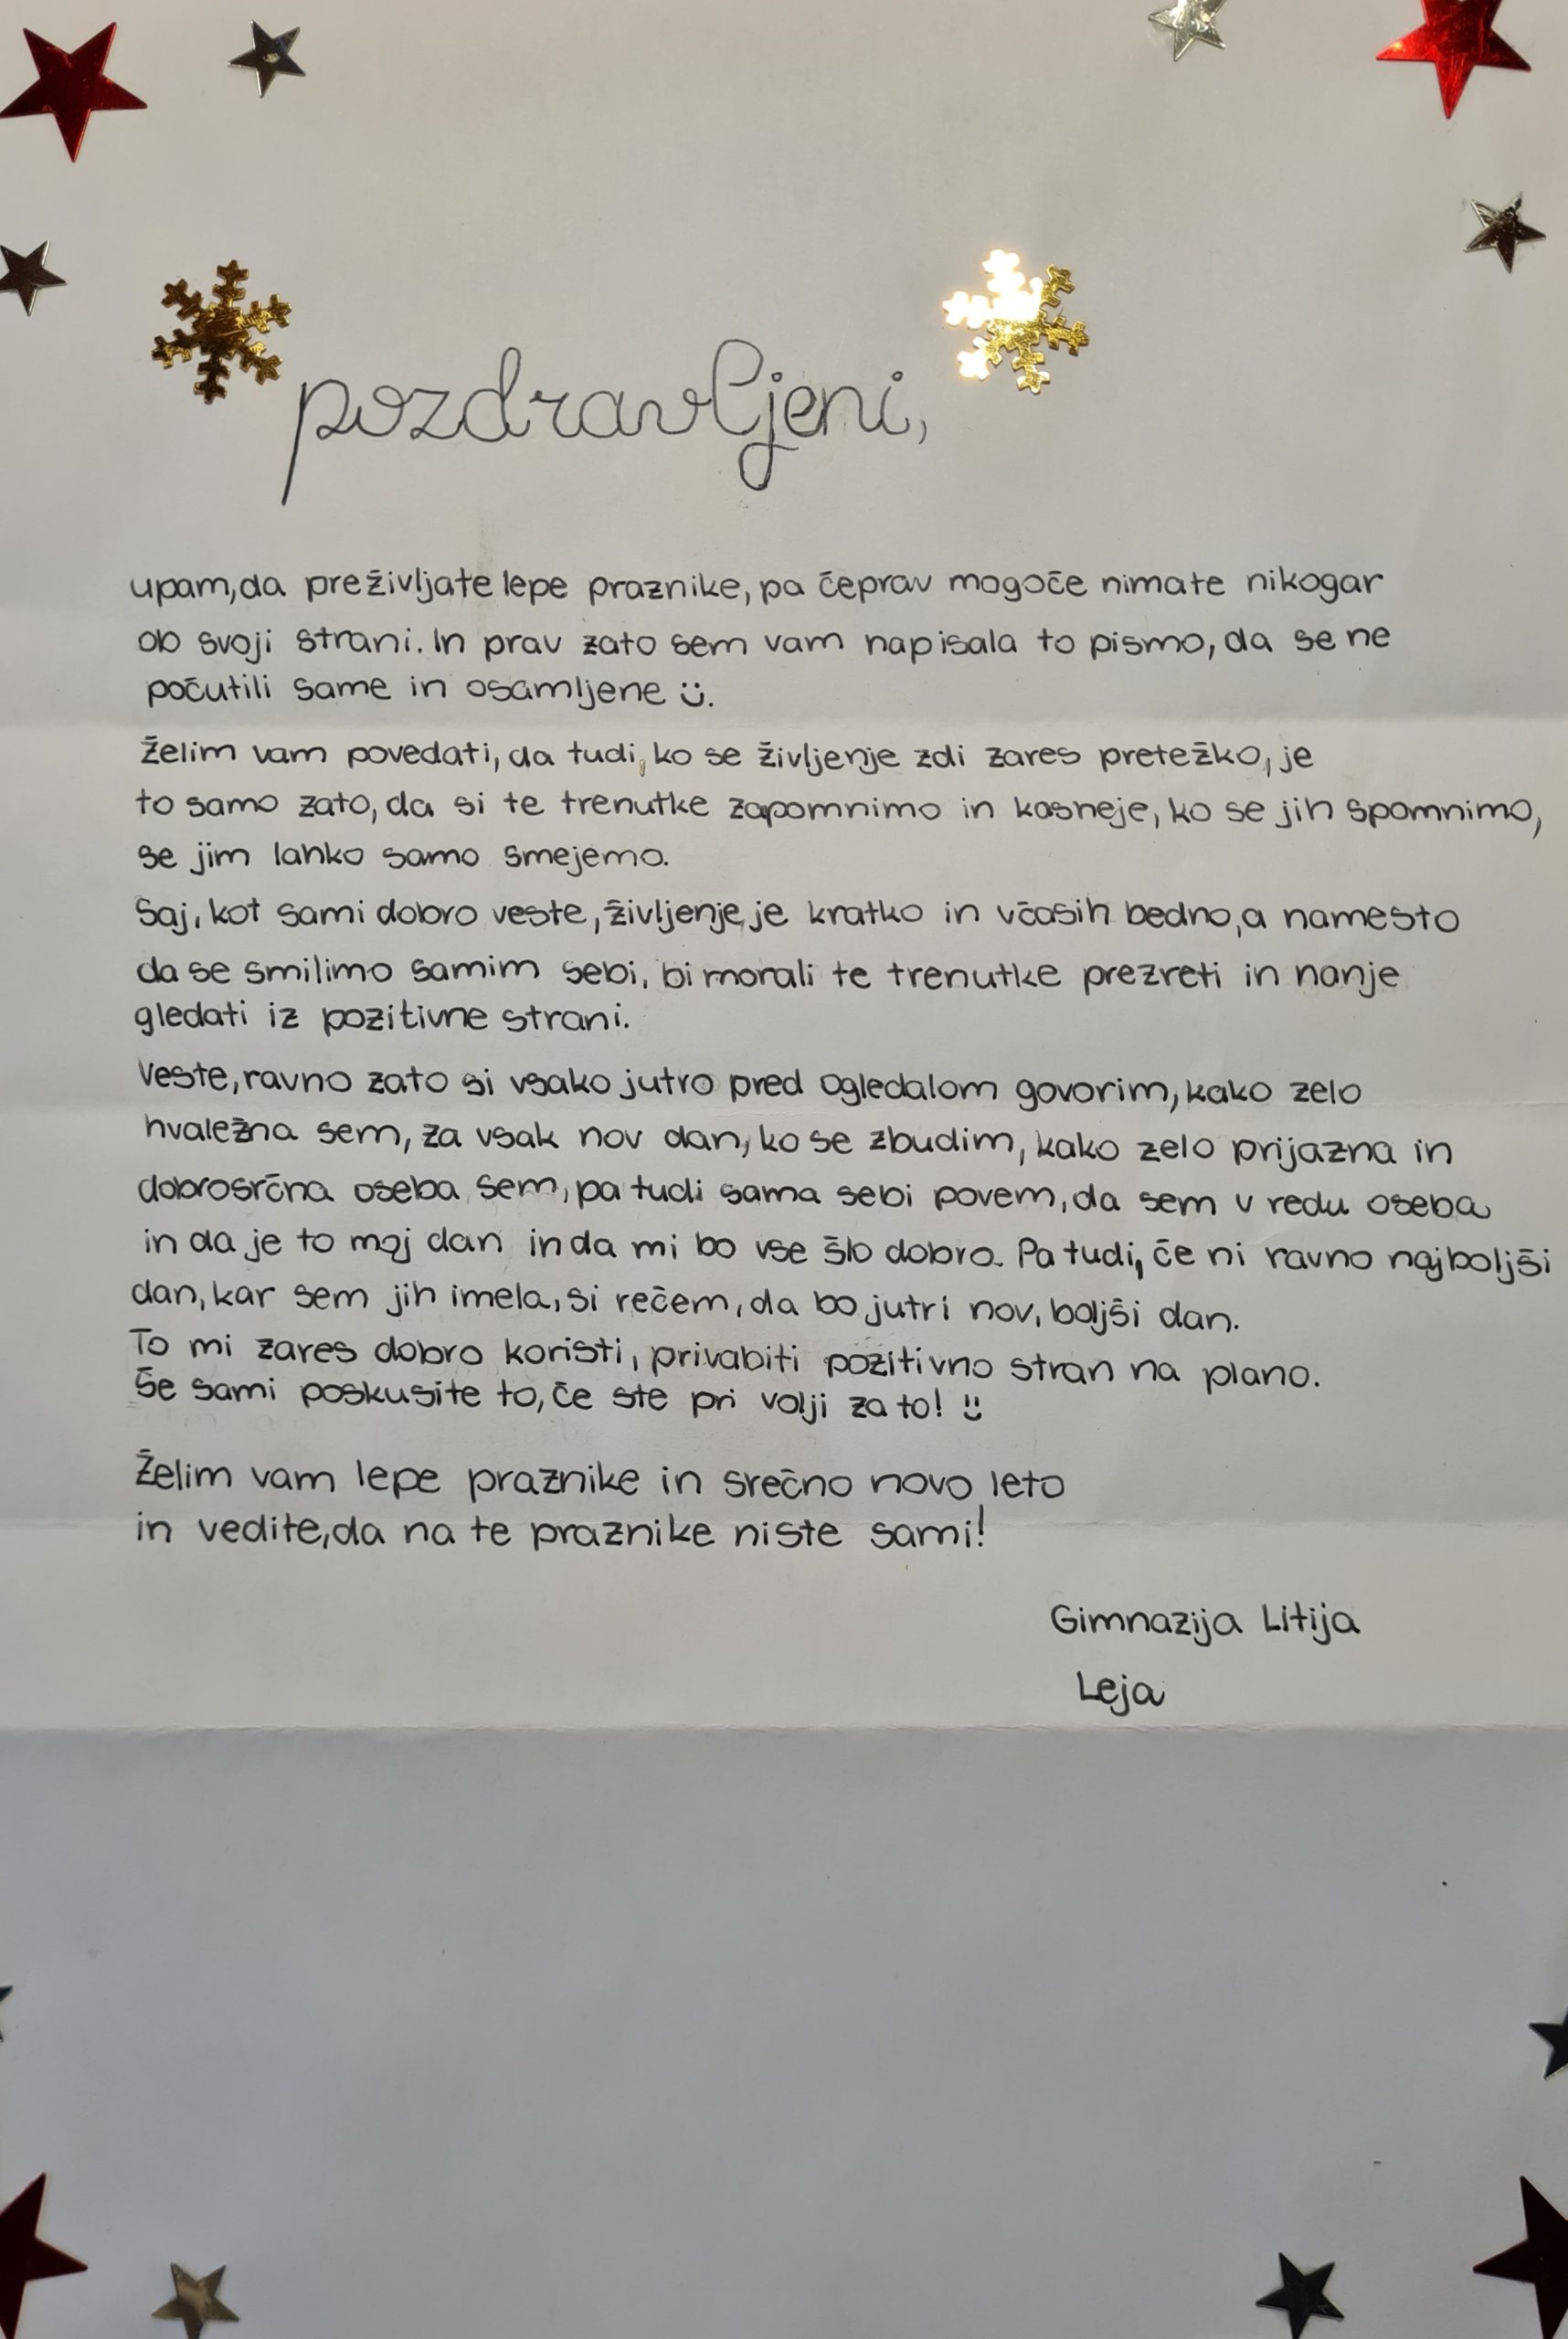 pozdravljeni,
upam, da preživljate lepe praznike, pa čeprav mogoče nimate nikogar
ob svoji strani. In prav zato sem vam napisala to pismo, da se ne
počutili same in osamljene ü.
Želim vam povedati, da tudi, ko se življenje zdi zares pretežko, je
to samo zato, da si te trenutke zapomnimo in kasneje, ko se jih spomnimo,
se jim lahko samo smejemo.
Saj, kot sami dobro veste, življenje je kratko in včasih bedno, a namesto
da se smilimo samim sebi, bi morali te trenutke prezreti in nanje
gledati iz pozitivne strani.
Veste, ravno zato si vsako jutro pred ogledalom govorim, kako zelo
hvaležna sem, za vsak nov dan, ko se zbudim, kako zelo prijazna in
dobrosrčna oseba sem, pa tudi sama sebi povem, da sem v redu oseba
in da je to moj dan in da mi bo vse šlo dobro. Pa tudi, če ni ravno najboljši
dan, kar sem jih imela, si rečem, da bo jutri nov, boljši dan.
To mi zares dobro koristi, privabiti pozitivno stran na plano.
Še sami poskusite to, če ste pri volji za to! ü
Želim vam lepe praznike in srečno novo leto
in vedite, da na te praznike niste sami!
Gimnazija Litija
Leja